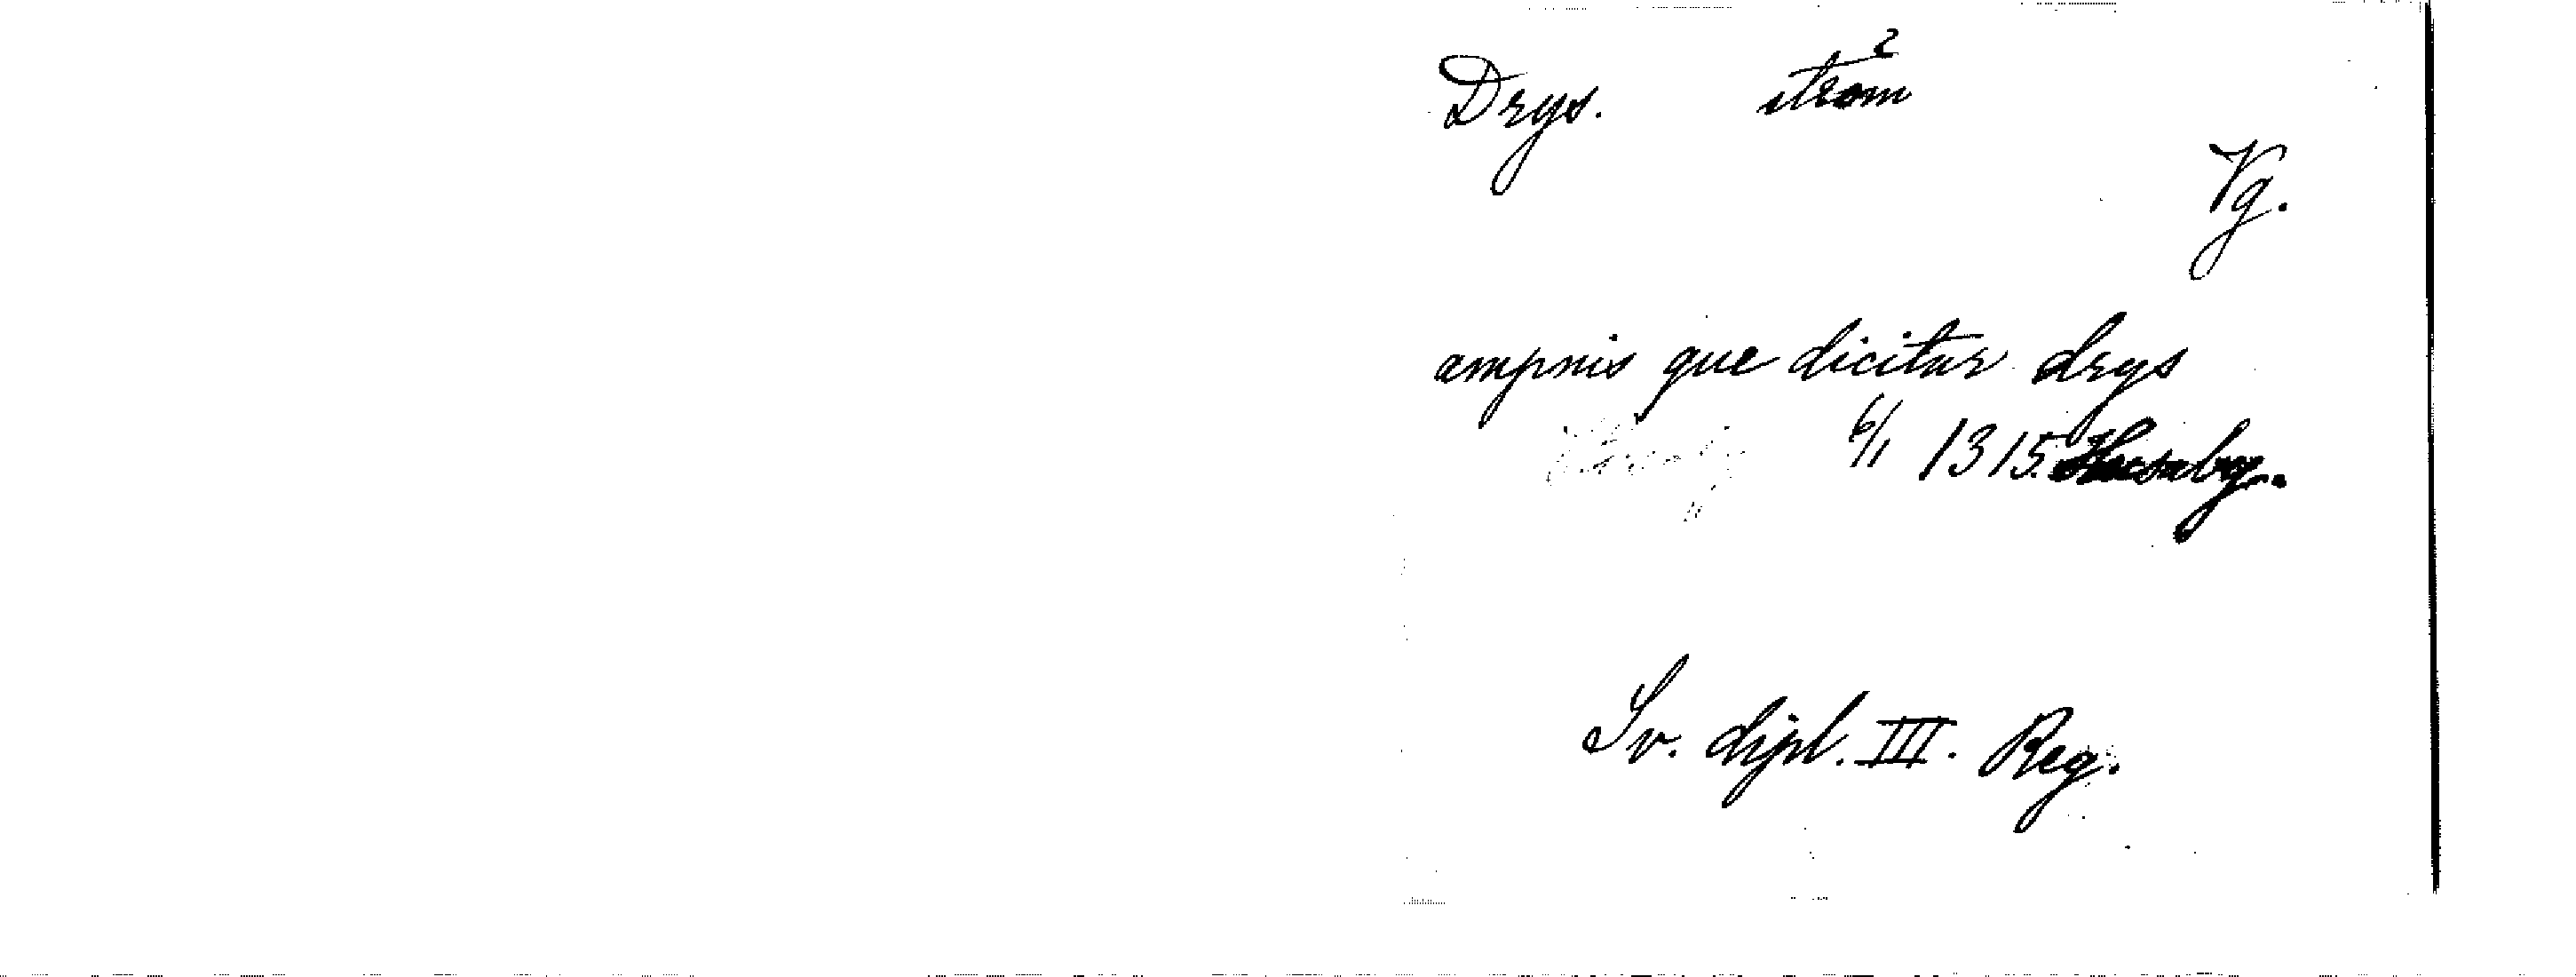 Drys. ström 2
Vg.
ampnis que dicitur drys
6/1 1315. Husaby.
Sv. dipl. III. Reg.